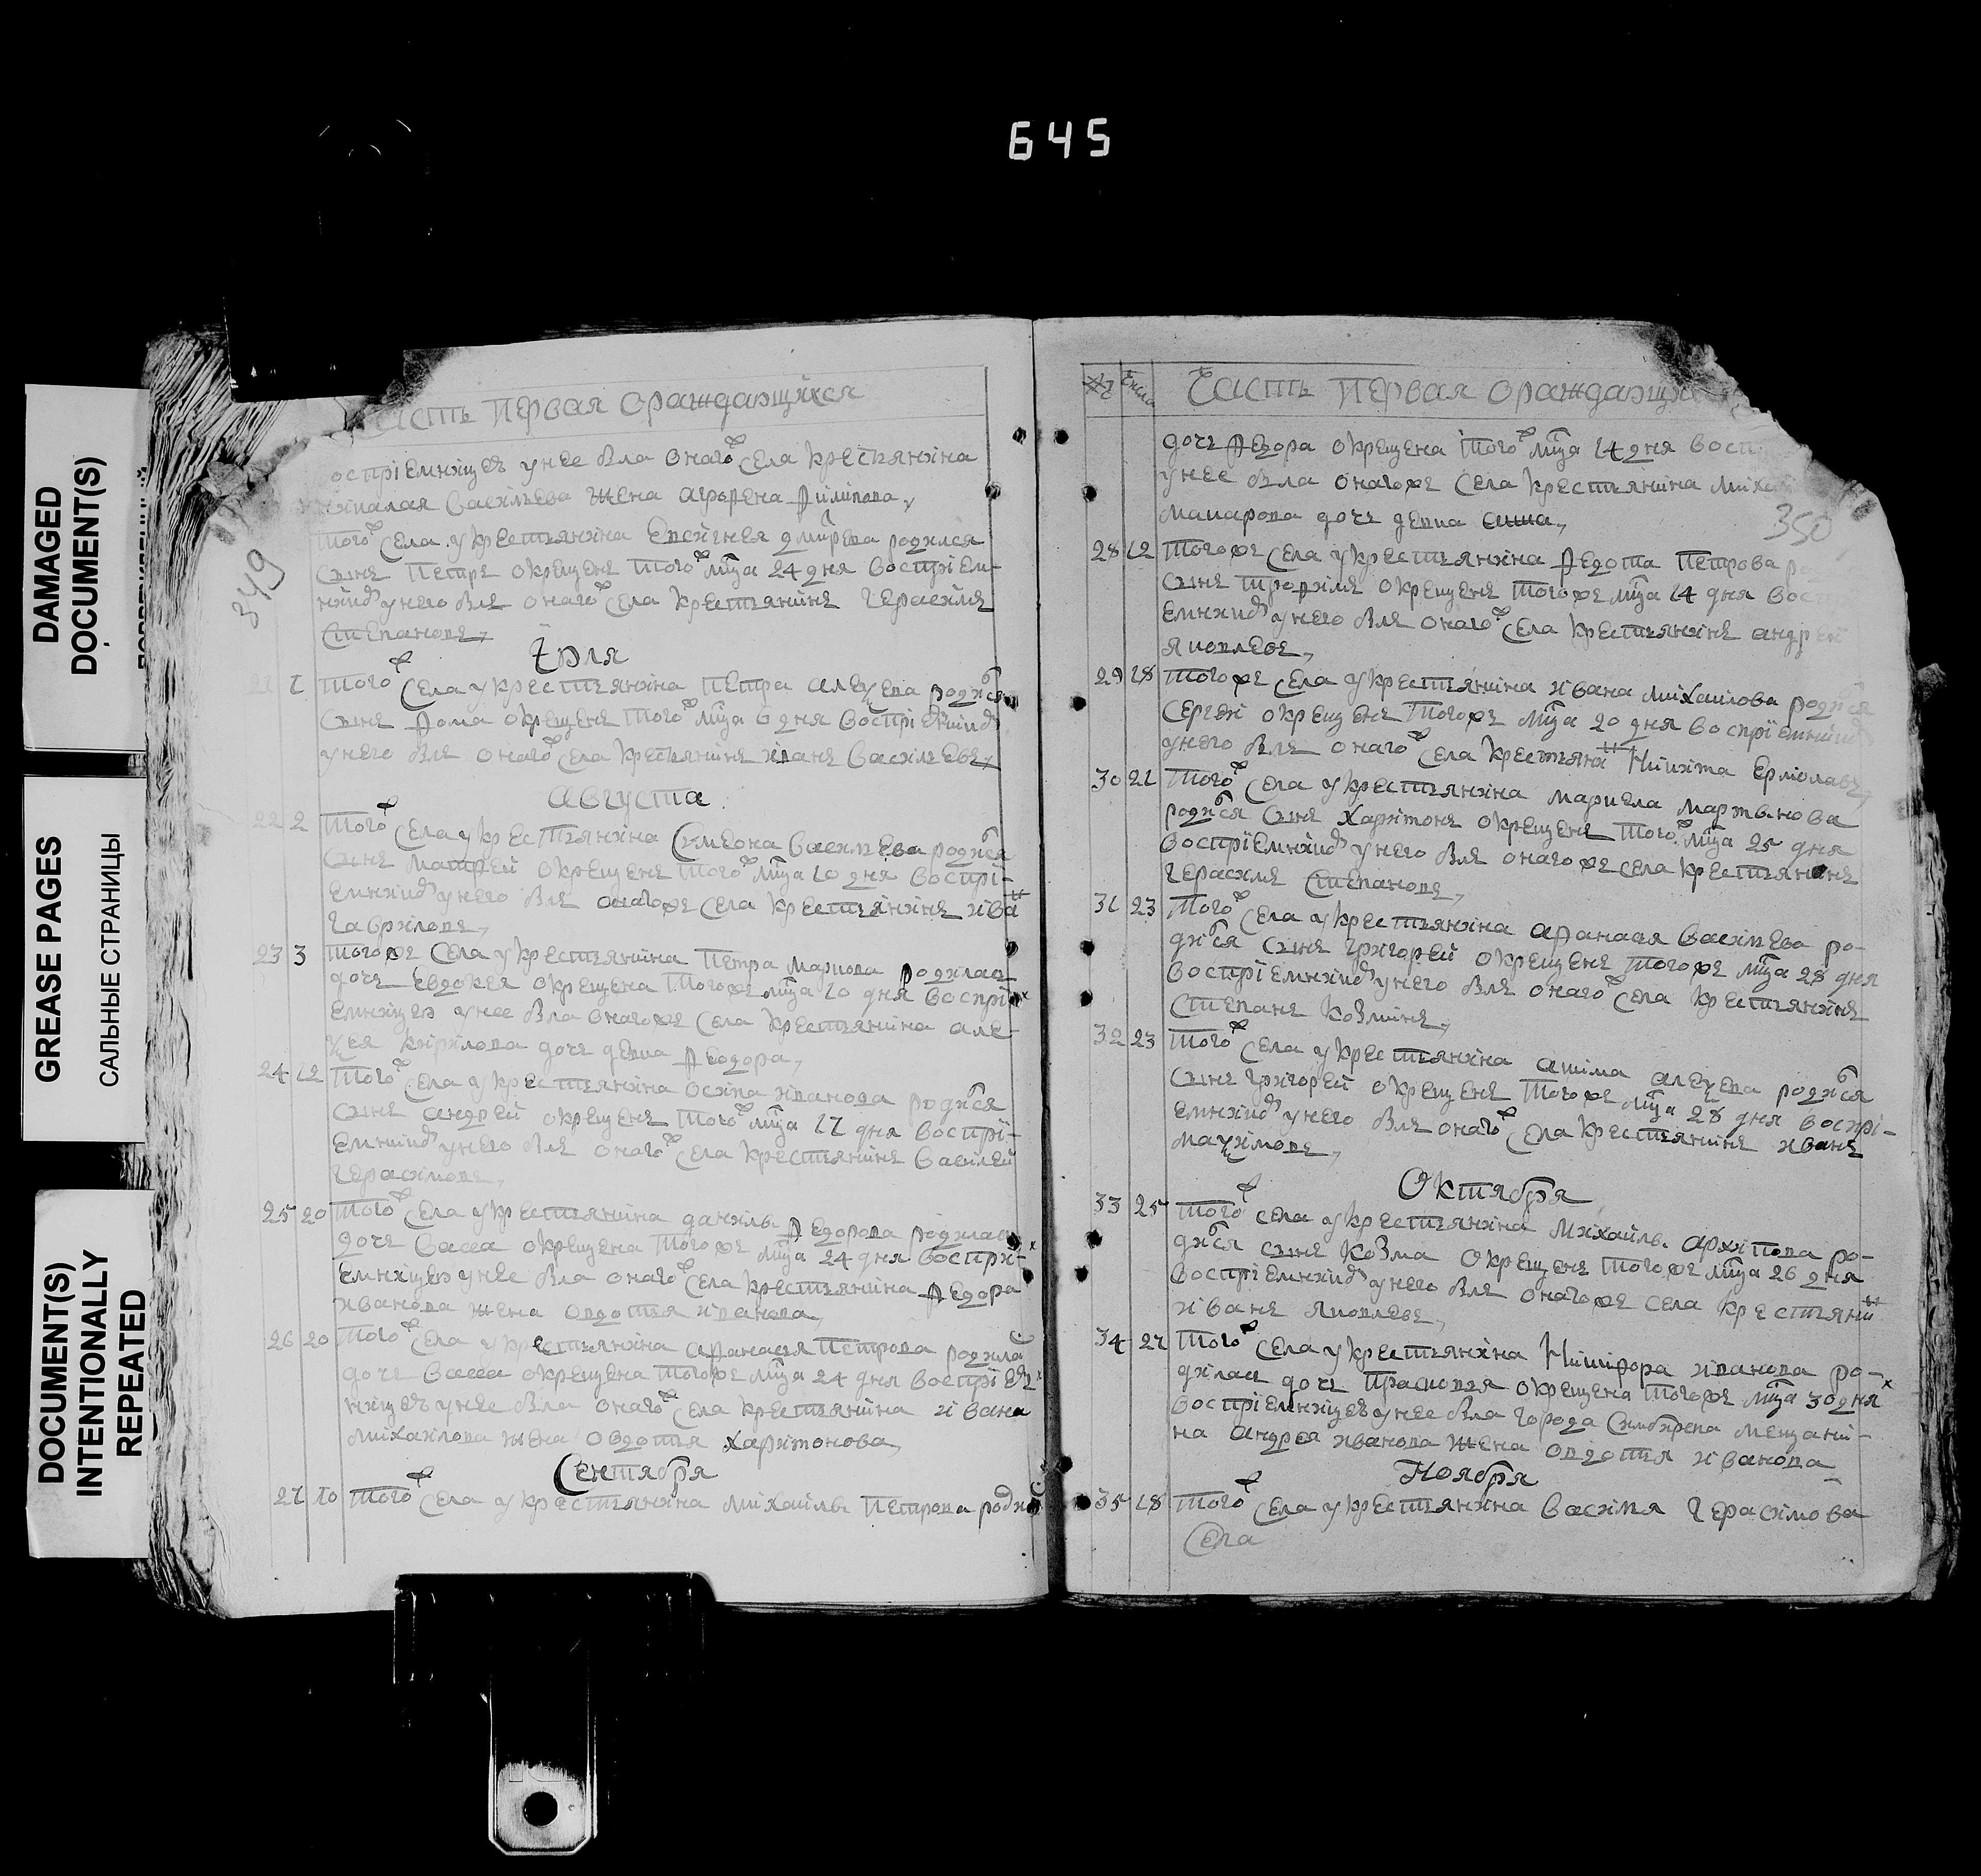 645
DAMAGED
DOCUMENT(S)
GREASE PAGES
САЛЬНЫЕ СТРАНИЦЫ
DOCUMENT(S)
INTENTIONALLY
REPEATED
349
асть первая ораждающихся
оспріемницею у нее была онаго села крестьянина
Васильева жена Агрофена Филипова
того села у крестьянина Евсигнея Дмитрева родился
сынъ Петръ окрещенъ того мца 24 дня воспріем-
никомъ у него былъ онаго села крестьянинъ Герасимъ
Степановъ
Июля
21 1 того села у крестьянина Петра Алексева родился
сынъ Фома окрещенъ того мца 6 дня воспріемникомъ
у него былъ онаго села крестьянинъ Иванъ Васильевъ
Августа
22 2 того села у крестьянина Симеона Васильева родился
сынъ Матфей окрещенъ того мца 10 дня воспрі-
емникомъ у него былъ онагоже села крестьянинъ Иванъ
Гавриловъ
23 3 тогоже села у крестьянина Петра Маркова родилас
дочь Евдокея окрещена тогоже мца 10 дня воспрі-
емницею у нее была онагоже села крестьянина Але-
ксея Кирилова дочь девка Феодора
24 12 того села у крестьянина Осипа Иванова родился
сынъ Андрей окрещенъ того мца 17 дня воспрі-
емникомъ у него былъ онаго села крестьянинъ Василей
Герасимовъ
25 20 того села у крестьянина Данилы Федорова родилас
дочь Васса окрещена тогоже мца 24 дня воспри-
емницею у нее была онаго села крестьянина Федора
Иванова жена Овдотья Иванова
26 20 того села у крестьянина Афанасья Петрова родилас
дочь Васса окрещена тогоже мца 24 дня воспріем
ницею у нее была онаго села крестьянина Ивана
Михаилова жена Овдотья Харитонова
Сентября
27 10 того села у крестьянина Михаилы Петрова родилас
№ Числа Часть первая ораждающихся
350
дочь Федора окрещена того мца 14 дня восп
у нее была онагоже села крестьянина Миха
Макарова дочь девка Анна
28 12 тогоже села у крестьянина Федота Петрова ро
сынъ Трофимъ окрещенъ тогоже мца 14 дня вос
емникомъ у него былъ онаго села крестьянинъ Андрей
Яковлевъ
29 18 тогоже села у крестьянина Ивана Михаилова родился
Сергей окрещенъ тогоже мца 20 дня воспріемникомъ
у него былъ онаго села крестьянинъ Никита Ермолаевъ
30 21 того села у крестьянина Маркела Мартынова
родился сынъ Харитонъ окрещенъ того мца 25 дня
воспріемникомъ у него былъ онагоже села крестьянинъ
Герасимъ Степановъ
31 23 того села у крестьянина Афанасья Васильева ро-
дился сынъ Григорей окрещенъ тогоже мца 28 дня
воспріемникомъ у него былъ онаго села крестьянинъ
Степанъ Козминъ
32 23 того села у крестьянина Акима Алексева родился
сынъ Григорей окрещенъ тогоже мца 28 дня воспрі-
емникомъ у него былъ онаго села крестьянинъ Иванъ
Максимовъ
Октября
33 25 того села у крестьянина Михаилы Архипова ро-
дился сынъ Козма окрещенъ тогоже мца 26 дня
воспріемникомъ у него былъ онагоже села крестьянинъ
Иванъ Яковлевъ
34 27 того села у крестьянина Никифора Иванова ро-
дилас дочь Прасковья окрещена тогоже мца 30 дня
воспріемницею у нее была города Симбирска мещани-
на Андрея Иванова жена Овдотья Иванова
Ноября
35 18 того села у крестьянина Василья Герасимова
Села